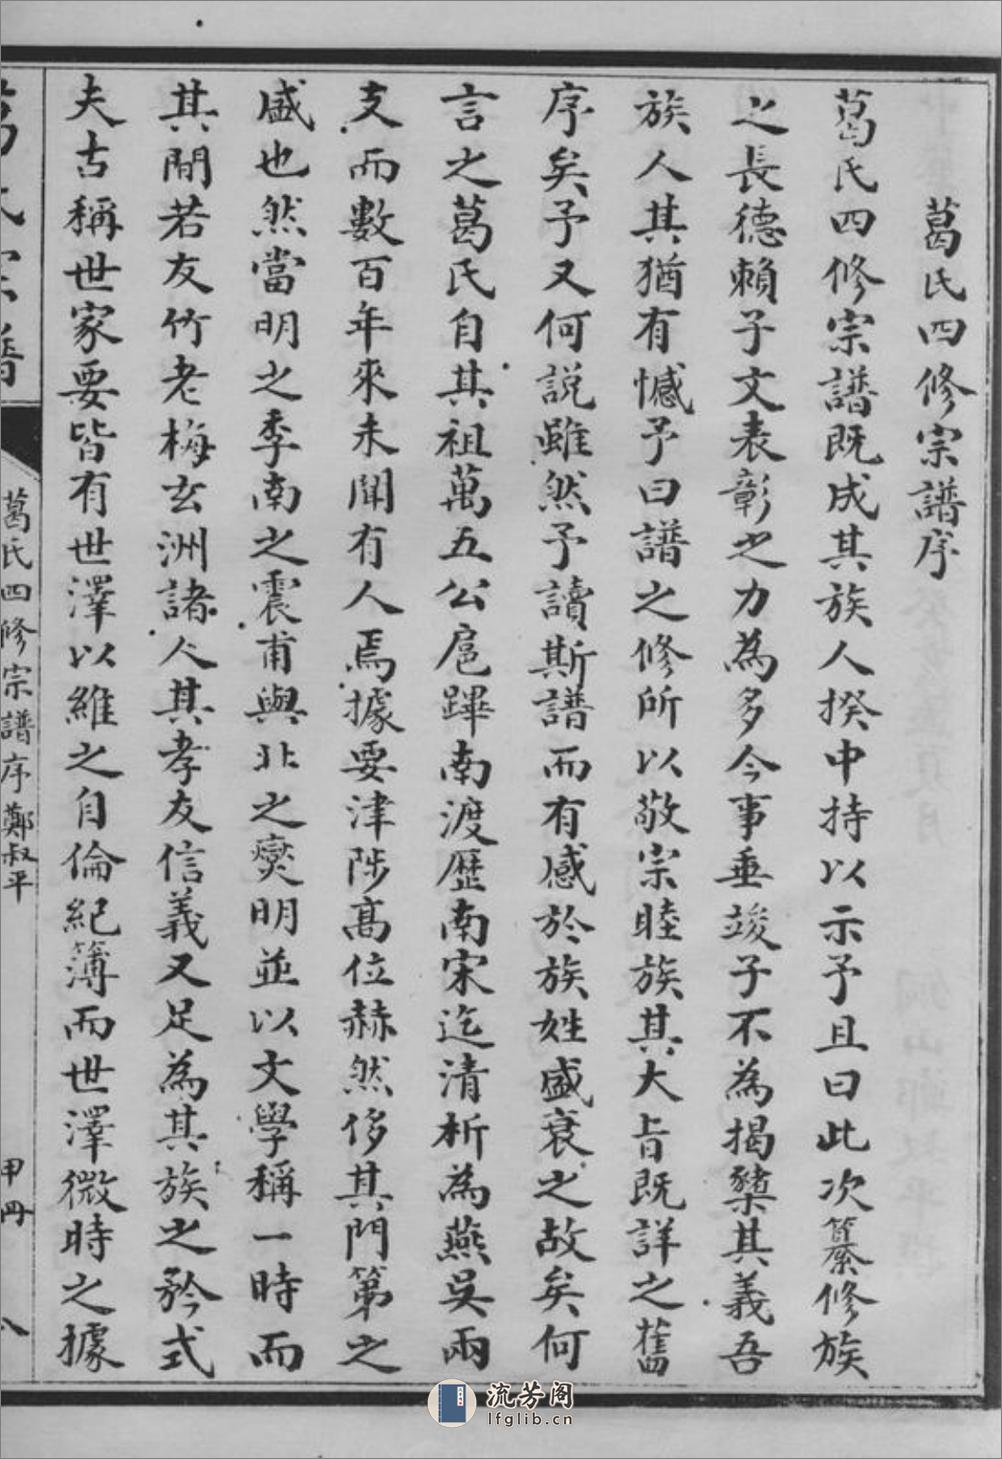 葛氏四修宗譜序
葛氏四修宗譜既成其族人揆中持以示予且曰此次纂修族
之長德賴子文表彰之力為多今事垂竣子不為揭櫫其義吾
族人其猶有憾予曰譜之修所以敬宗睦族其大旨既詳之舊
序矣予又何說雖然予讀斯譜而有感於族姓盛衰之故矣何
言之葛氏自其祖萬五公扈蹕南渡歷南宋迄清析為燕吳兩
支而數百年來未聞有人焉據要津陟高位赫然侈其門第之
盛也然當明之季南之震甫與北之爕明並以文學稱一時而
其間若友竹老梅玄洲諸人其孝友信義又足為其族之矜式
夫古稱世家要皆有世澤以維之自倫紀簿而世澤微時之據
葛氏宗譜
葛氏四修宗譜序鄭叔平
甲冊
八
流芳阁
lfglib.cn